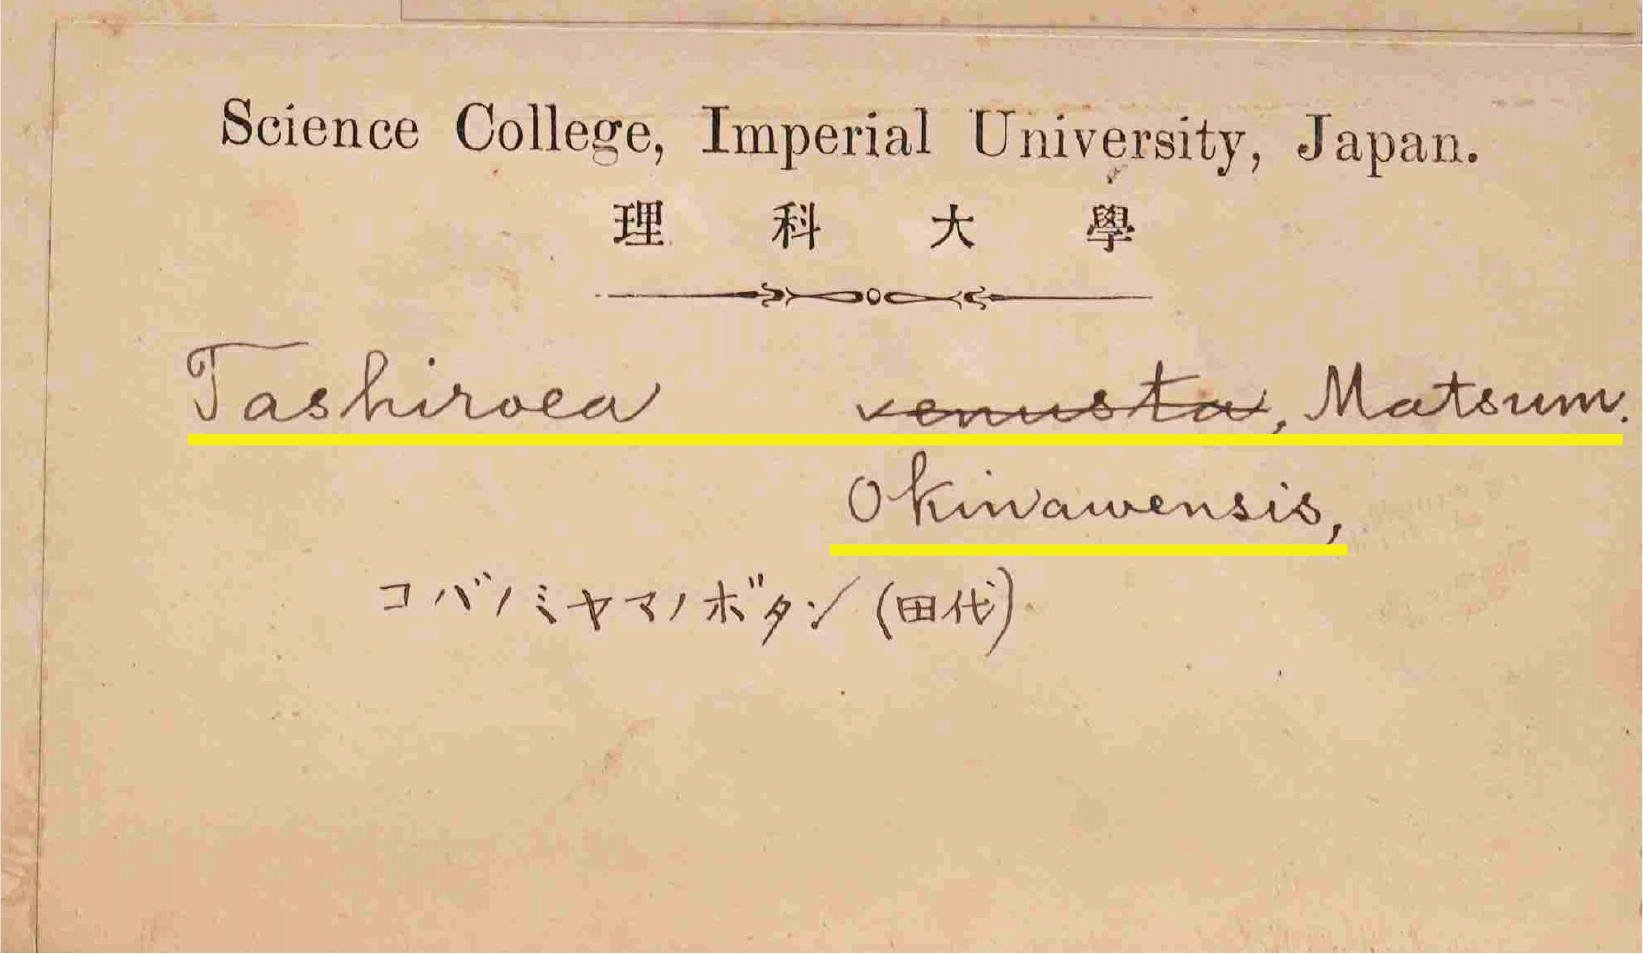 Science College, Imperial University, Japan.
理科大學
Tashiroea venusta, Matsum.
Okinawensis,
コバノミヤマノボタン (田代)